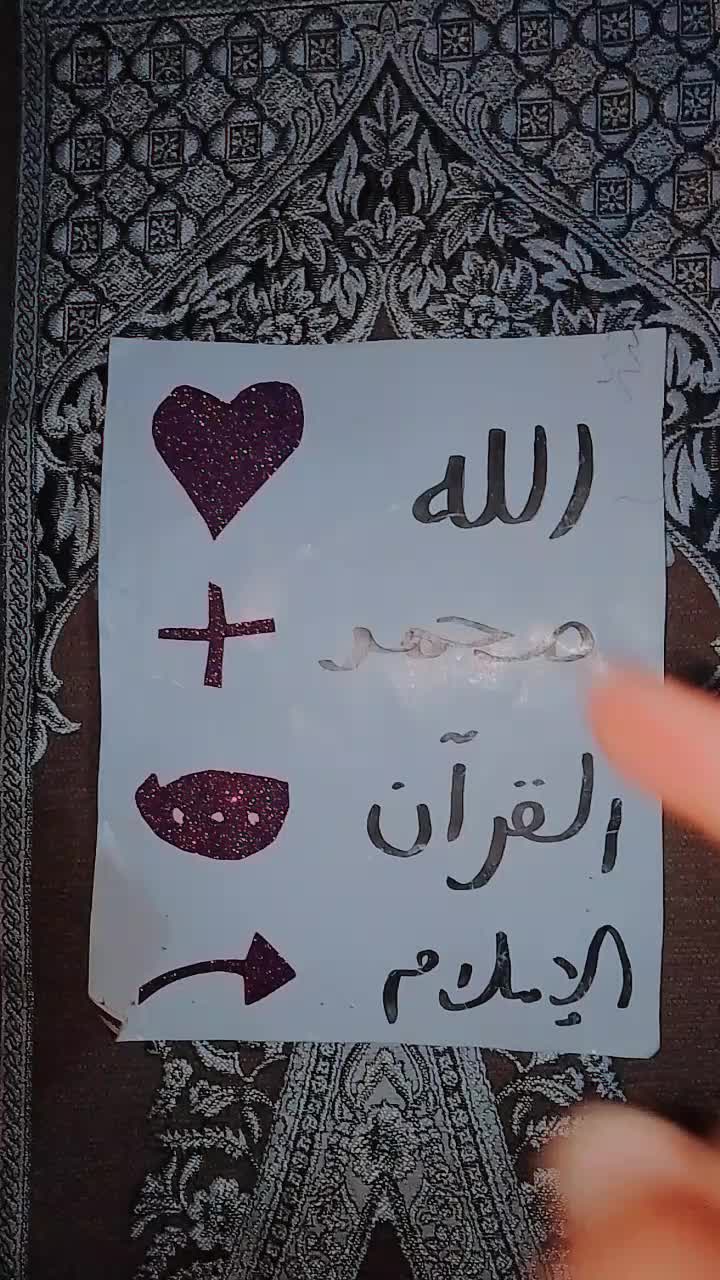 الله
محمد
القرآن
الإسلام